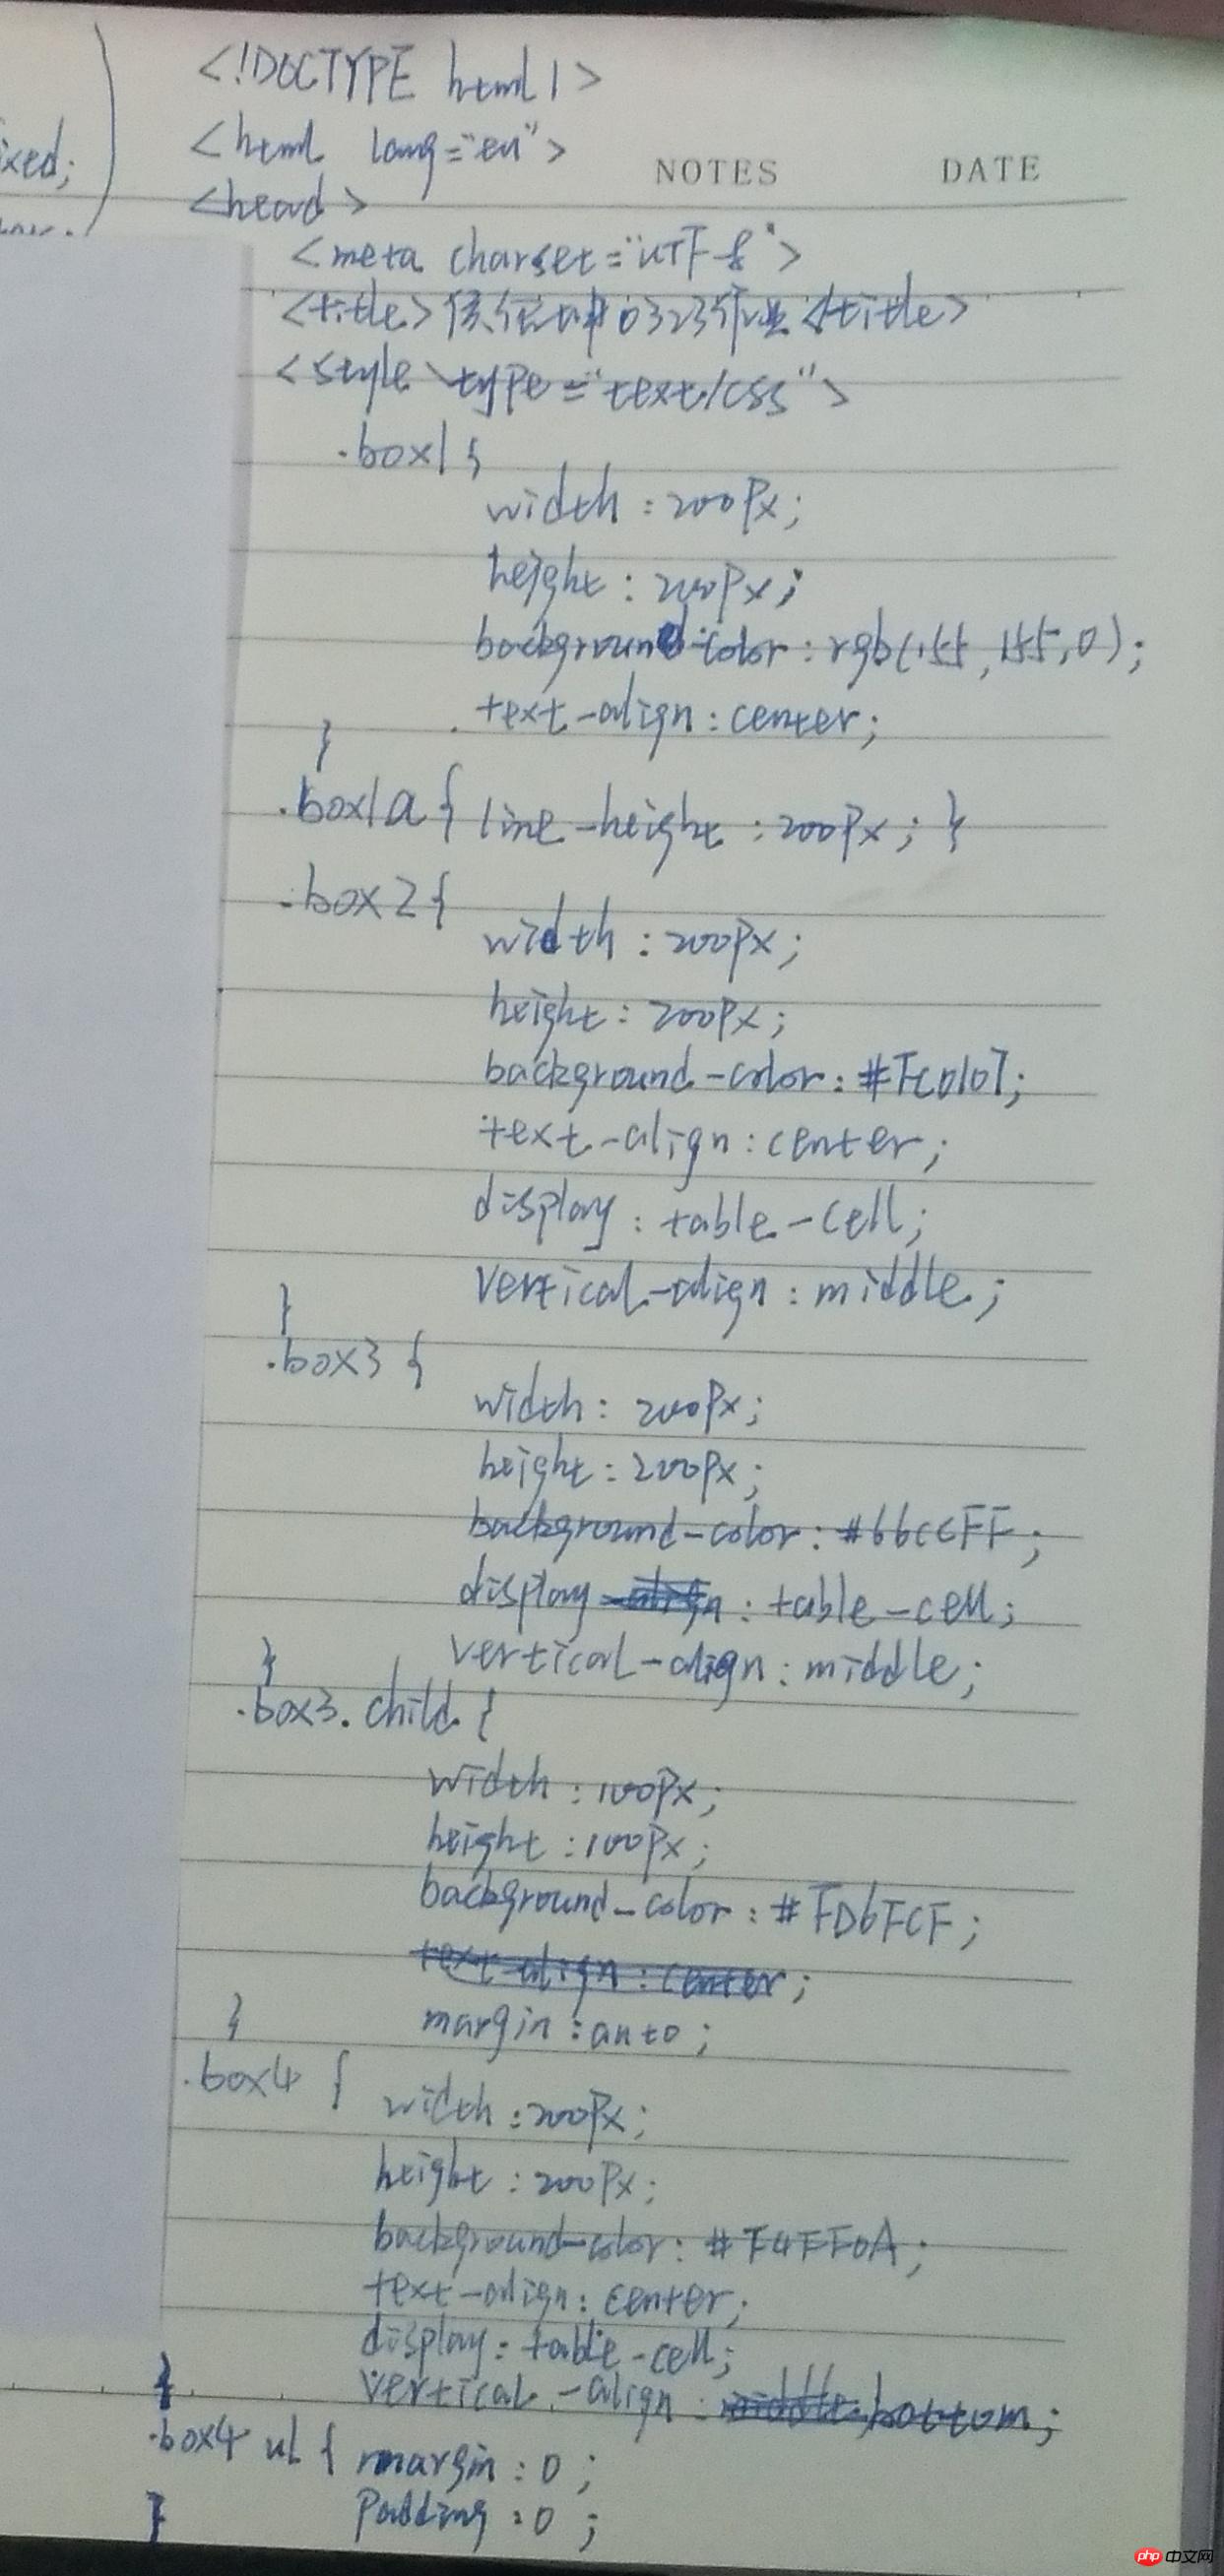 <!DOCTYPE html>
<html lang="en">
ixed;
NOTES DATE
<head>
<meta charset="UTF-8">
<title> 0323作业</title>
<style type="text/css">
.box1{
width:200px;
height:200px;
background-color:rgb(155,155,0);
text-align:center;
}
.box1a{line-height:200px;}
.box2{
width:200px;
height:200px;
background-color:#FC0107;
text-align:center;
display:table-cell;
vertical-align:middle;
}
.box3{
width:200px;
height:200px;
background-color:#66CCFF;
display:table-cell;
vertical-align:middle;
}
.box3.child{
width:100px;
height:100px;
background-color:#FD6FCF;
margin:auto;
}
.box4{
width:200px;
height:200px;
background-color:#F4FF0A;
text-align:center;
display:table-cell;
vertical-align:bottom;
}
.box4 ul{margin:0;
padding:0;
}
php中文网